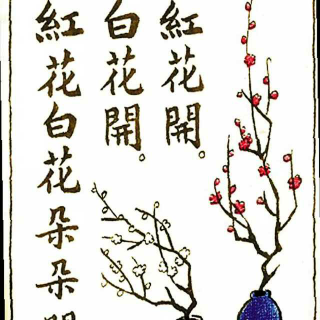 紅花開。
白花開。
紅花白花朵朵